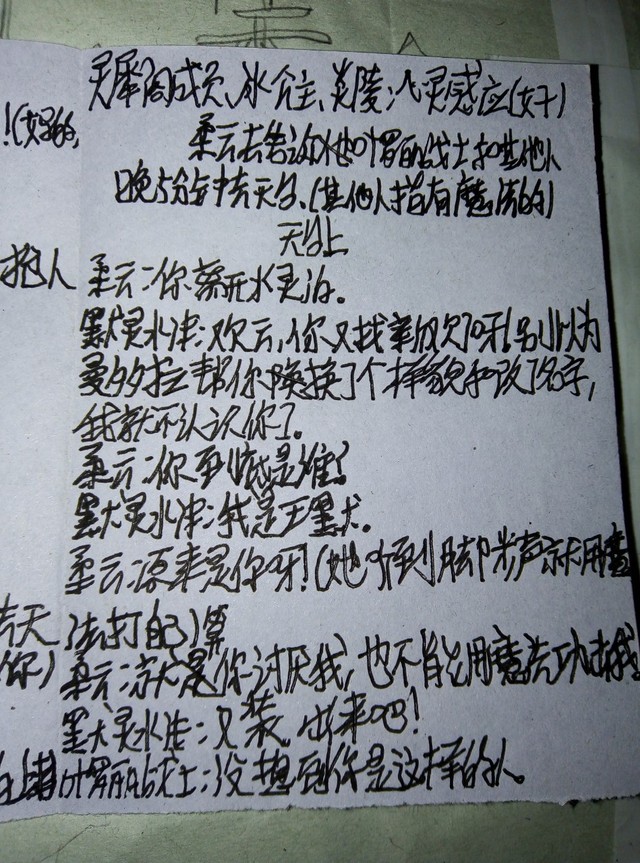 灵犀阁成员、冰公主、炎陵:心灵感应(好)
!(好的,
柔云去告诉她叶罗丽战士和其他人
晚5分钟去天台、(其他人指有魔法的)
天台上
抱人
柔云:你离开水灵泊。
黑犬灵水津:欢云,你又找辛欠了呀!别以为
曼多拉帮你换了个样貌和改了名字,
我就不认识你了。
柔云:你到底是谁?
黑犬灵水津:我是王黑犬。
柔云:原来是你呀!(她听到脚步声就用魔
去天
法打自己)算
你)
柔云:就是你讨厌我,也不能用魔法攻击我
黑犬灵水津:又装。出来吧!
叶罗丽战士:没想到你是这样的人。